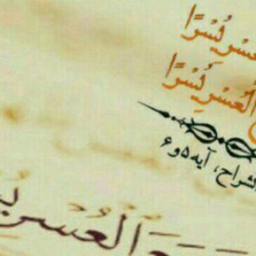 لعسر يُسْرًا
الْعُسْرِ يُسْرًا
انشراح، آیه ۵و۶
مَعَ الْعُسْرِ يُ